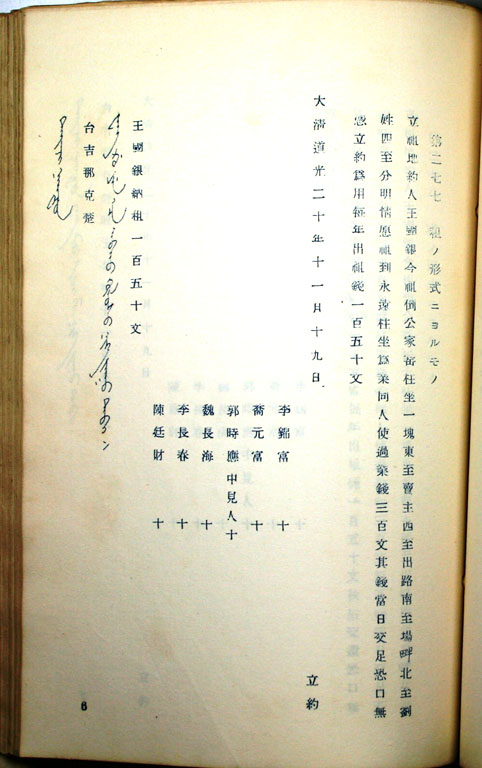 第二七七 租ノ形式ニヨルモノ
立租地約人王國銀今租倒公家窑柱坐一塊東至賣主西至出路南至場畔北至劉
姓四至分明情愿租到永遠柱坐爲業同人使過業錢三百文其錢當日交足恐口無
憑立約爲用每年出租錢一百五十文
大淸道光二十年十一月十九日 立約
李錦富 十
喬元富 十
郭時應中見人十
魏長海 十
李長春 十
陳廷財 十
王國銀納租一百五十文
台吉那克楚
6